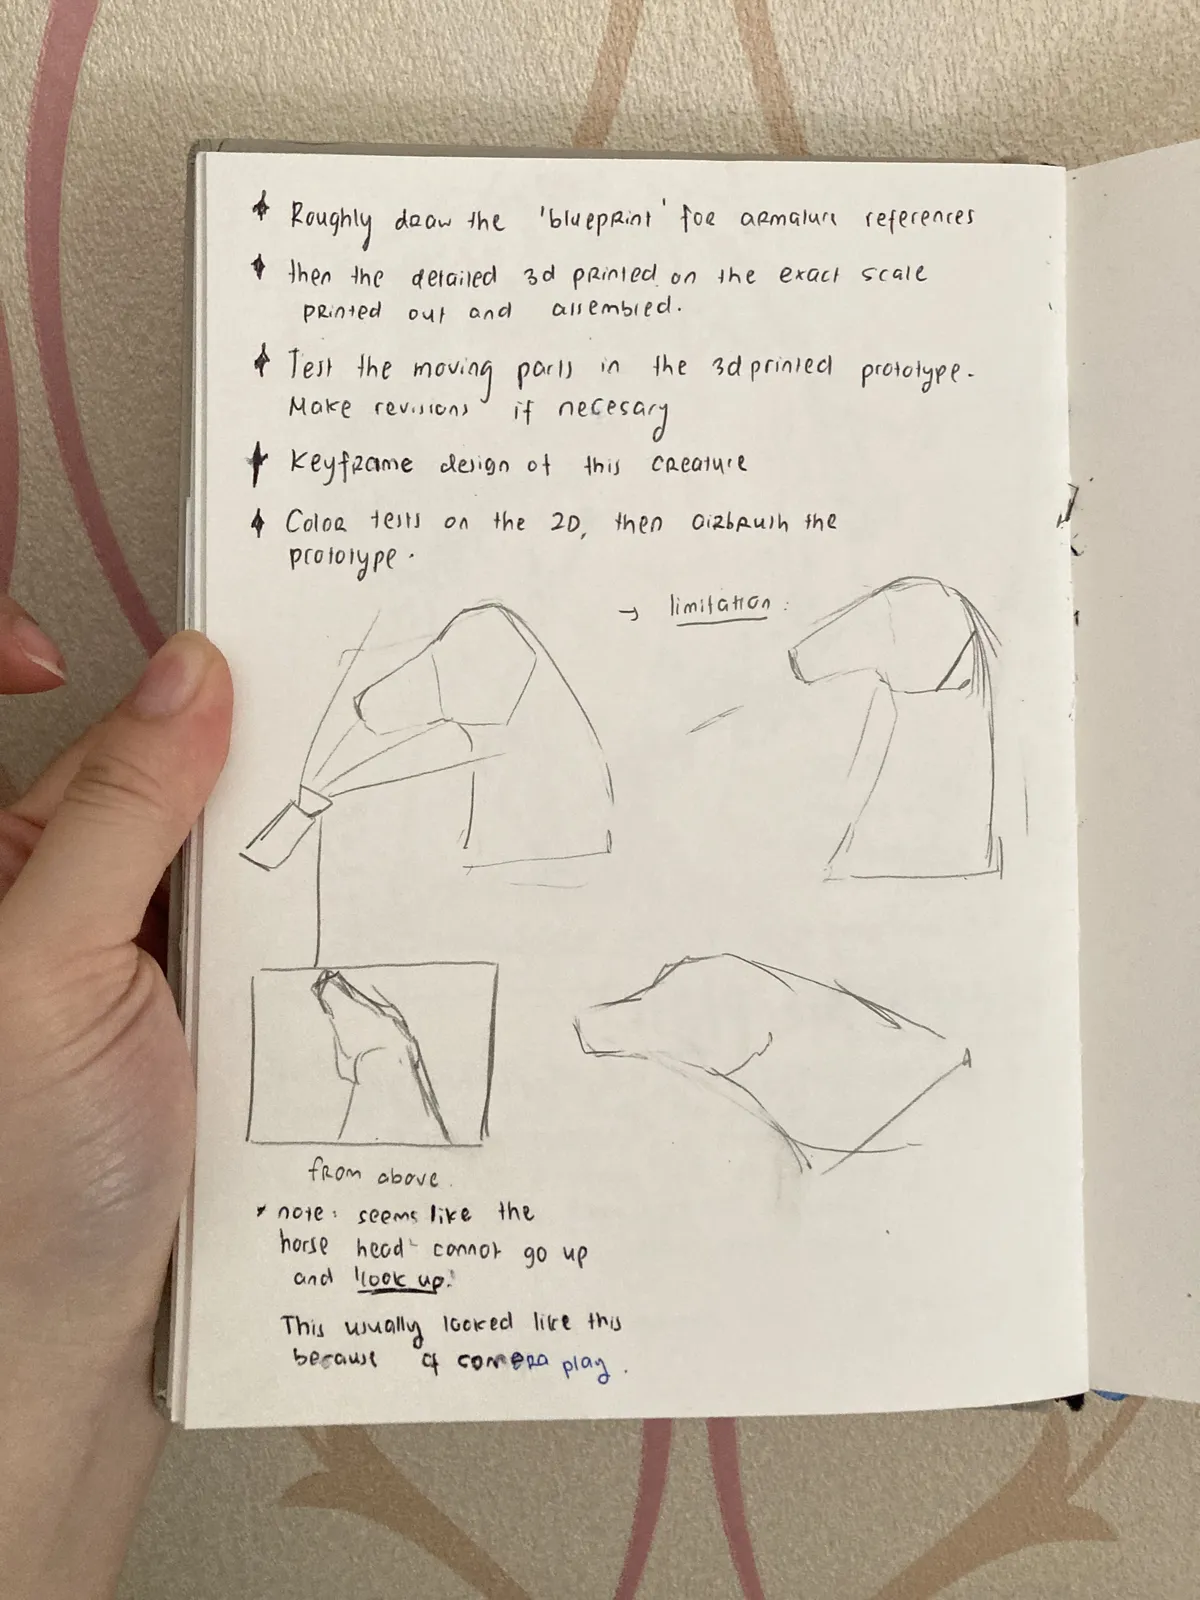 Roughly draw the 'blueprint' for armature references
then the detailed 3d printed on the exact scale
printed out and assembled.
Test the moving parts in the 3d printed prototype.
Make revisions if necesary
Keyframe design of this creature
Color tests on the 2D, then airbrush the
prototype.
→ limitation:
from above.
* note: seems like the
horse head cannot go up
and 'look up.'
This usually looked like this
because of camera play.